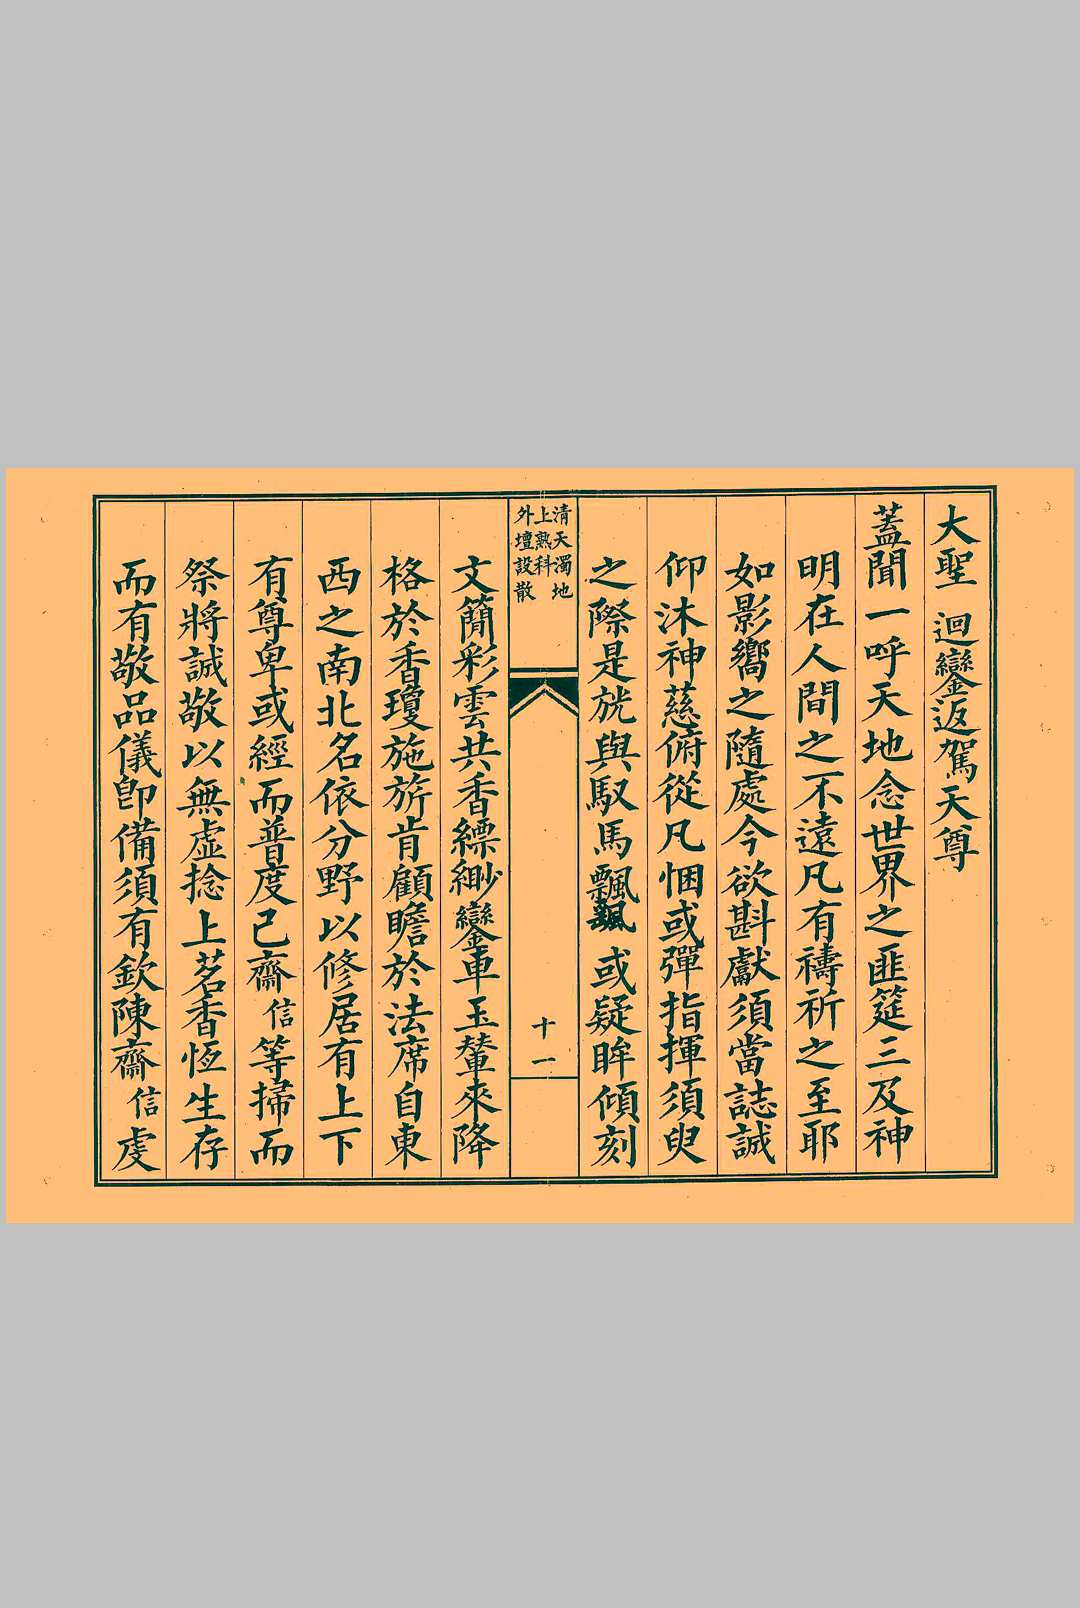 大聖 迴鑾返駕天尊
蓋聞一呼天地念世界之匪筵三及神
明在人間之不遠凡有禱祈之至耶
如影嚮之隨處今欲斟獻須當誌誠
仰沐神慈俯從凡悃或彈指揮須臾
之際是旄與馭馬飄飄或疑眸傾刻
清天濁地
上熟科
外壇設散
十一
文簡彩雲共香縹緲鑾車玉輦來降
格於香瓊施旂肯顧瞻於法席自東
西之南北名依分野以修居有上下
有尊卑或經而普度已齋信等掃而
祭將誠敬以無虛捻上茗香恆生存
而有敬品儀即備須有欽陳齋信虔